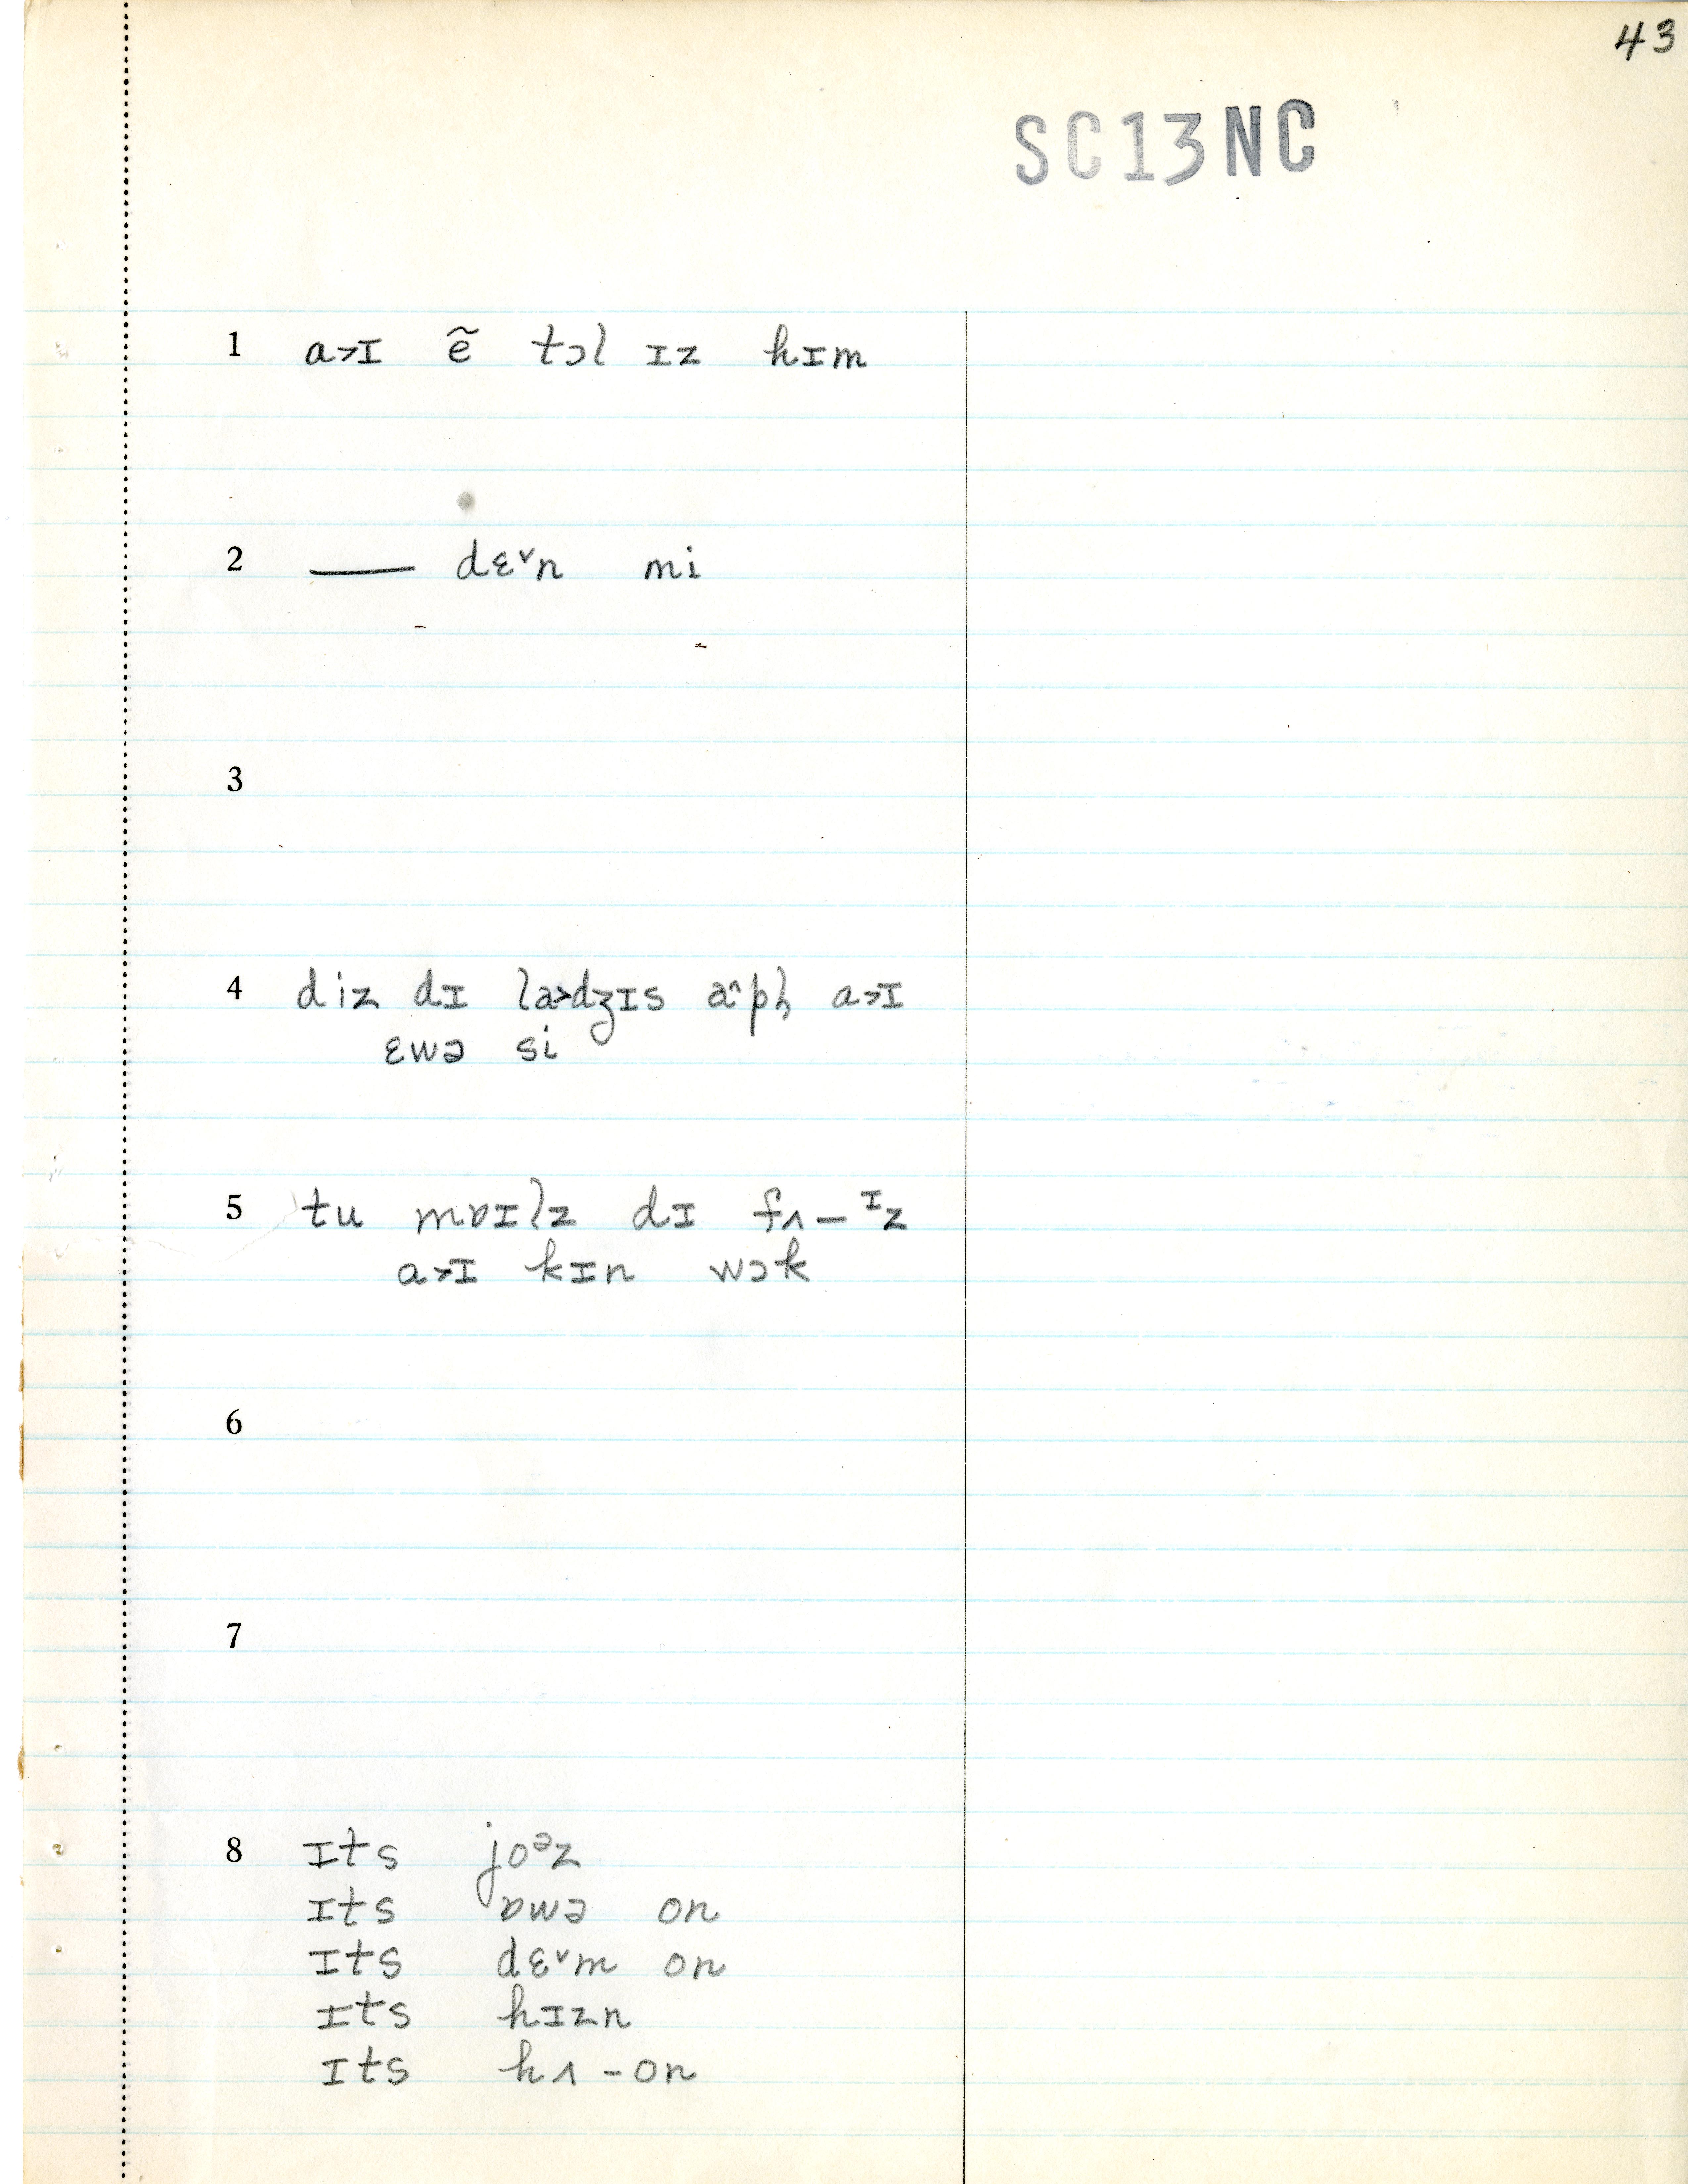 43
SC13NC
1 a>ɪ ẽ tɔl ɪz hɪm
2 — dɛ˅n mi
3
4 diz dɪ la>dʒɪs a^ph a>ɪ
ɛwə si
5 tu mɒɪlz dɪ fʌ–ᶦz
a>ɪ kɪn wɔk
6
7
8 ɪts joᵊz
ɪts ɒwə on
ɪts dɛ˅m on
ɪts hɪzn
ɪts hʌ-on